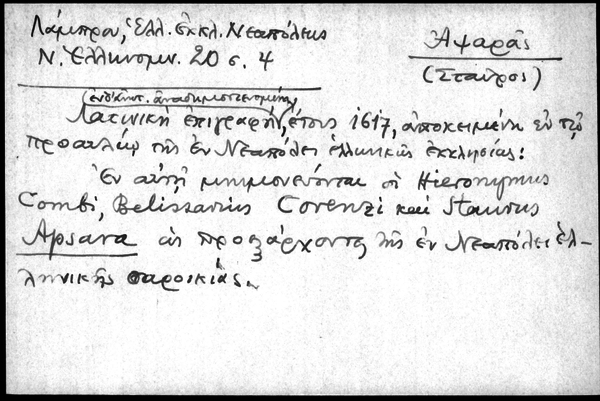 Λάμπρου, Ἑλλ. ἐκκλ. Νεαπόλεως
Ν. Ἑλληνομν. 20 σ. 4
Ἀψαρᾶς
(Σταῦρος)
Λατινικὴ ἐπιγραφὴ, ἔτους 1617, ἀποκειμένη ἐν τῷ
προαυλίῳ τῆς ἐν Νεαπόλει ἑλληνικῆς ἐκκλησίας:
Ἐν αὐτῇ μνημονεύονται οἱ Hieronymus
Combi, Belissarius Corenzi καὶ Staurus
Apsara ὡς προεξάρχοντες τῆς ἐν Νεαπόλει ἑλ-
ληνικῆς παροικίας.